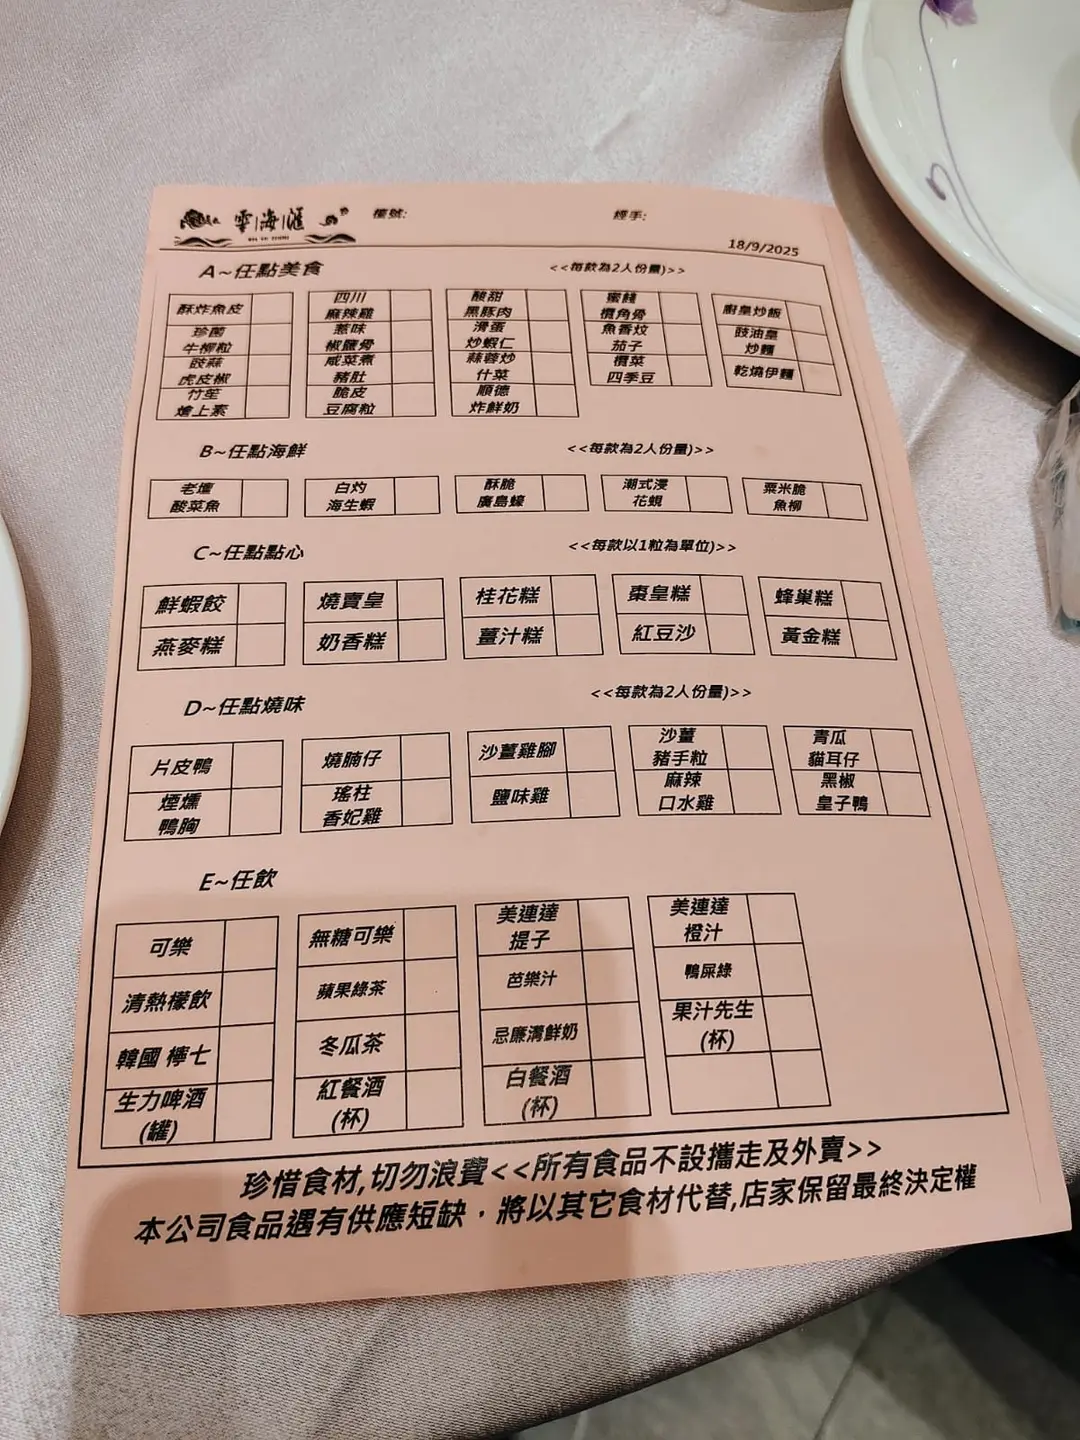 雲海滙 檯號: 經手:
18/9/2025
A~任點美食 <<每款為2人份量)>>
酥炸魚皮
四川
麻辣雞
酸甜
黑豚肉
蜜餞
欖角骨
廚皇炒飯
珍菌
牛柳粒
惹味
椒鹽骨
滑蛋
炒蝦仁
魚香炆
茄子
豉油皇
炒麵
豉蒜
虎皮椒
咸菜煮
豬肚
蒜蓉炒
什菜
欖菜
四季豆
乾燒伊麵
竹笙
燴上素
脆皮
豆腐粒
順德
炸鮮奶
B~任點海鮮 <<每款為2人份量)>>
老壇
酸菜魚
白灼
海生蝦
酥脆
廣島蠔
潮式浸
花蜆
粟米脆
魚柳
C~任點點心 <<每款以1粒為單位)>>
鮮蝦餃 燒賣皇 桂花糕 棗皇糕 蜂巢糕
燕麥糕 奶香糕 薑汁糕 紅豆沙 黃金糕
D~任點燒味 <<每款為2人份量)>>
片皮鴨
燒腩仔
沙薑雞腳
沙薑
豬手粒
青瓜
貓耳仔
煙燻
鴨胸
瑤柱
香妃雞
鹽味雞
麻辣
口水雞
黑椒
皇子鴨
E~任飲
可樂
無糖可樂
美連達
提子
美連達
橙汁
清熱檬飲
蘋果綠茶
芭樂汁
鴨屎綠
韓國 檸七
冬瓜茶
忌廉溝鮮奶
果汁先生
(杯)
生力啤酒
(罐)
紅餐酒
(杯)
白餐酒
(杯)
珍惜食材,切勿浪費<<所有食品不設攜走及外賣>>
本公司食品遇有供應短缺，將以其它食材代替,店家保留最終決定權